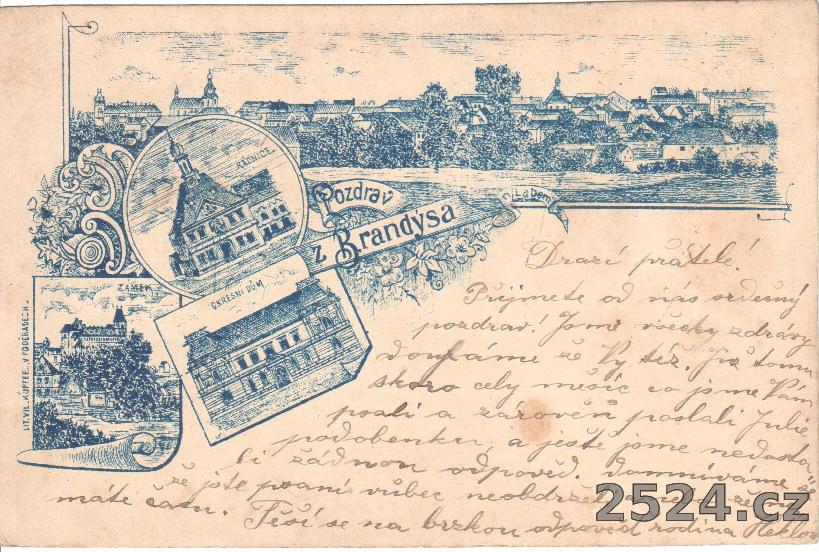 RADNICE.
Pozdrav
n/Labem
z Brandýsa
ZÁMEK
OKRESNÍ DŮM
LIT. VIL. KUPFER V PODĚBRADECH.
Drazí přátelé!
Přijmete od nás srdečný
pozdrav! Jsme všecky zdrávy
doufáme že Vy též. Již tomu
skoro celý měsíc co jsme Vám
psali a zároveň poslali Julie
podobenku, a ještě jsme nedosta
li žádnou odpověd. Domníváme se
že jste psaní vůbec neobdrželi
máte času. Těší se na brzkou odpověd rodina
2524.cz